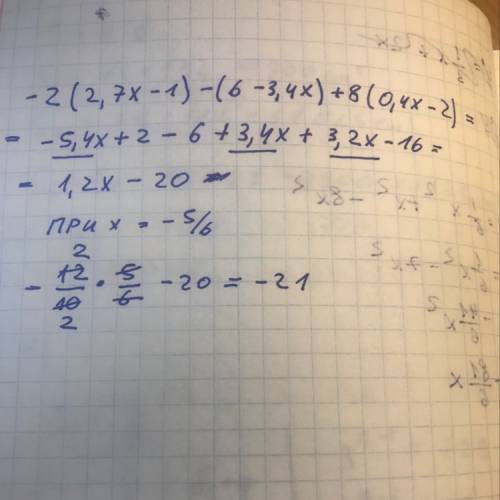 -2(2,7x-1)-(6-3,4x)+8(0,4x-2)=
= -5,4x+2-6+3,4x+3,2x-16=
= 1,2x-20
ПРИ x = -5/6
2
- 12/10 • 5/6 -20 = -21
2